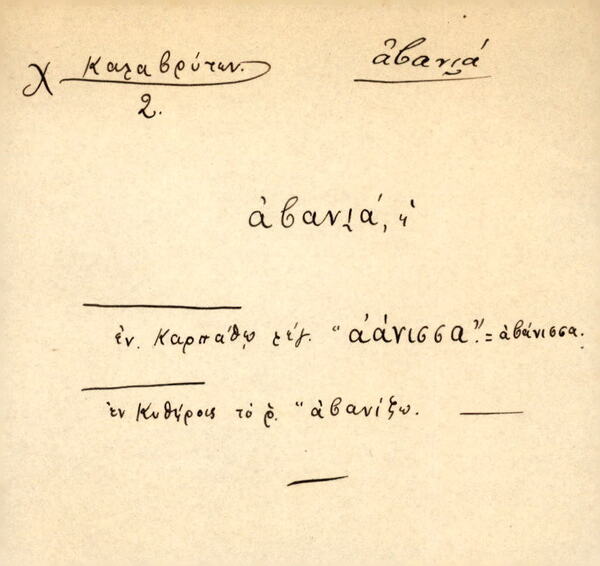 χ Καλαβρύτων. ἀβανιά
2.
ἀβανιά, ἡ
ἐν Καρπάθῳ λέγ. "ἀάνισσα" = ἀβάνισσα.
ἐν Κυθήροις τὸ ῥ. "ἀβανίζω.